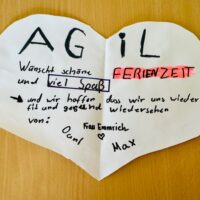 AGiL
Wünscht schöne FERIENZEIT
und viel Spaß
→ und wir hoffen dass wir uns wieder
fit und gesund wiedersehen
von: Frau Emmrich
Dani ♥ Max